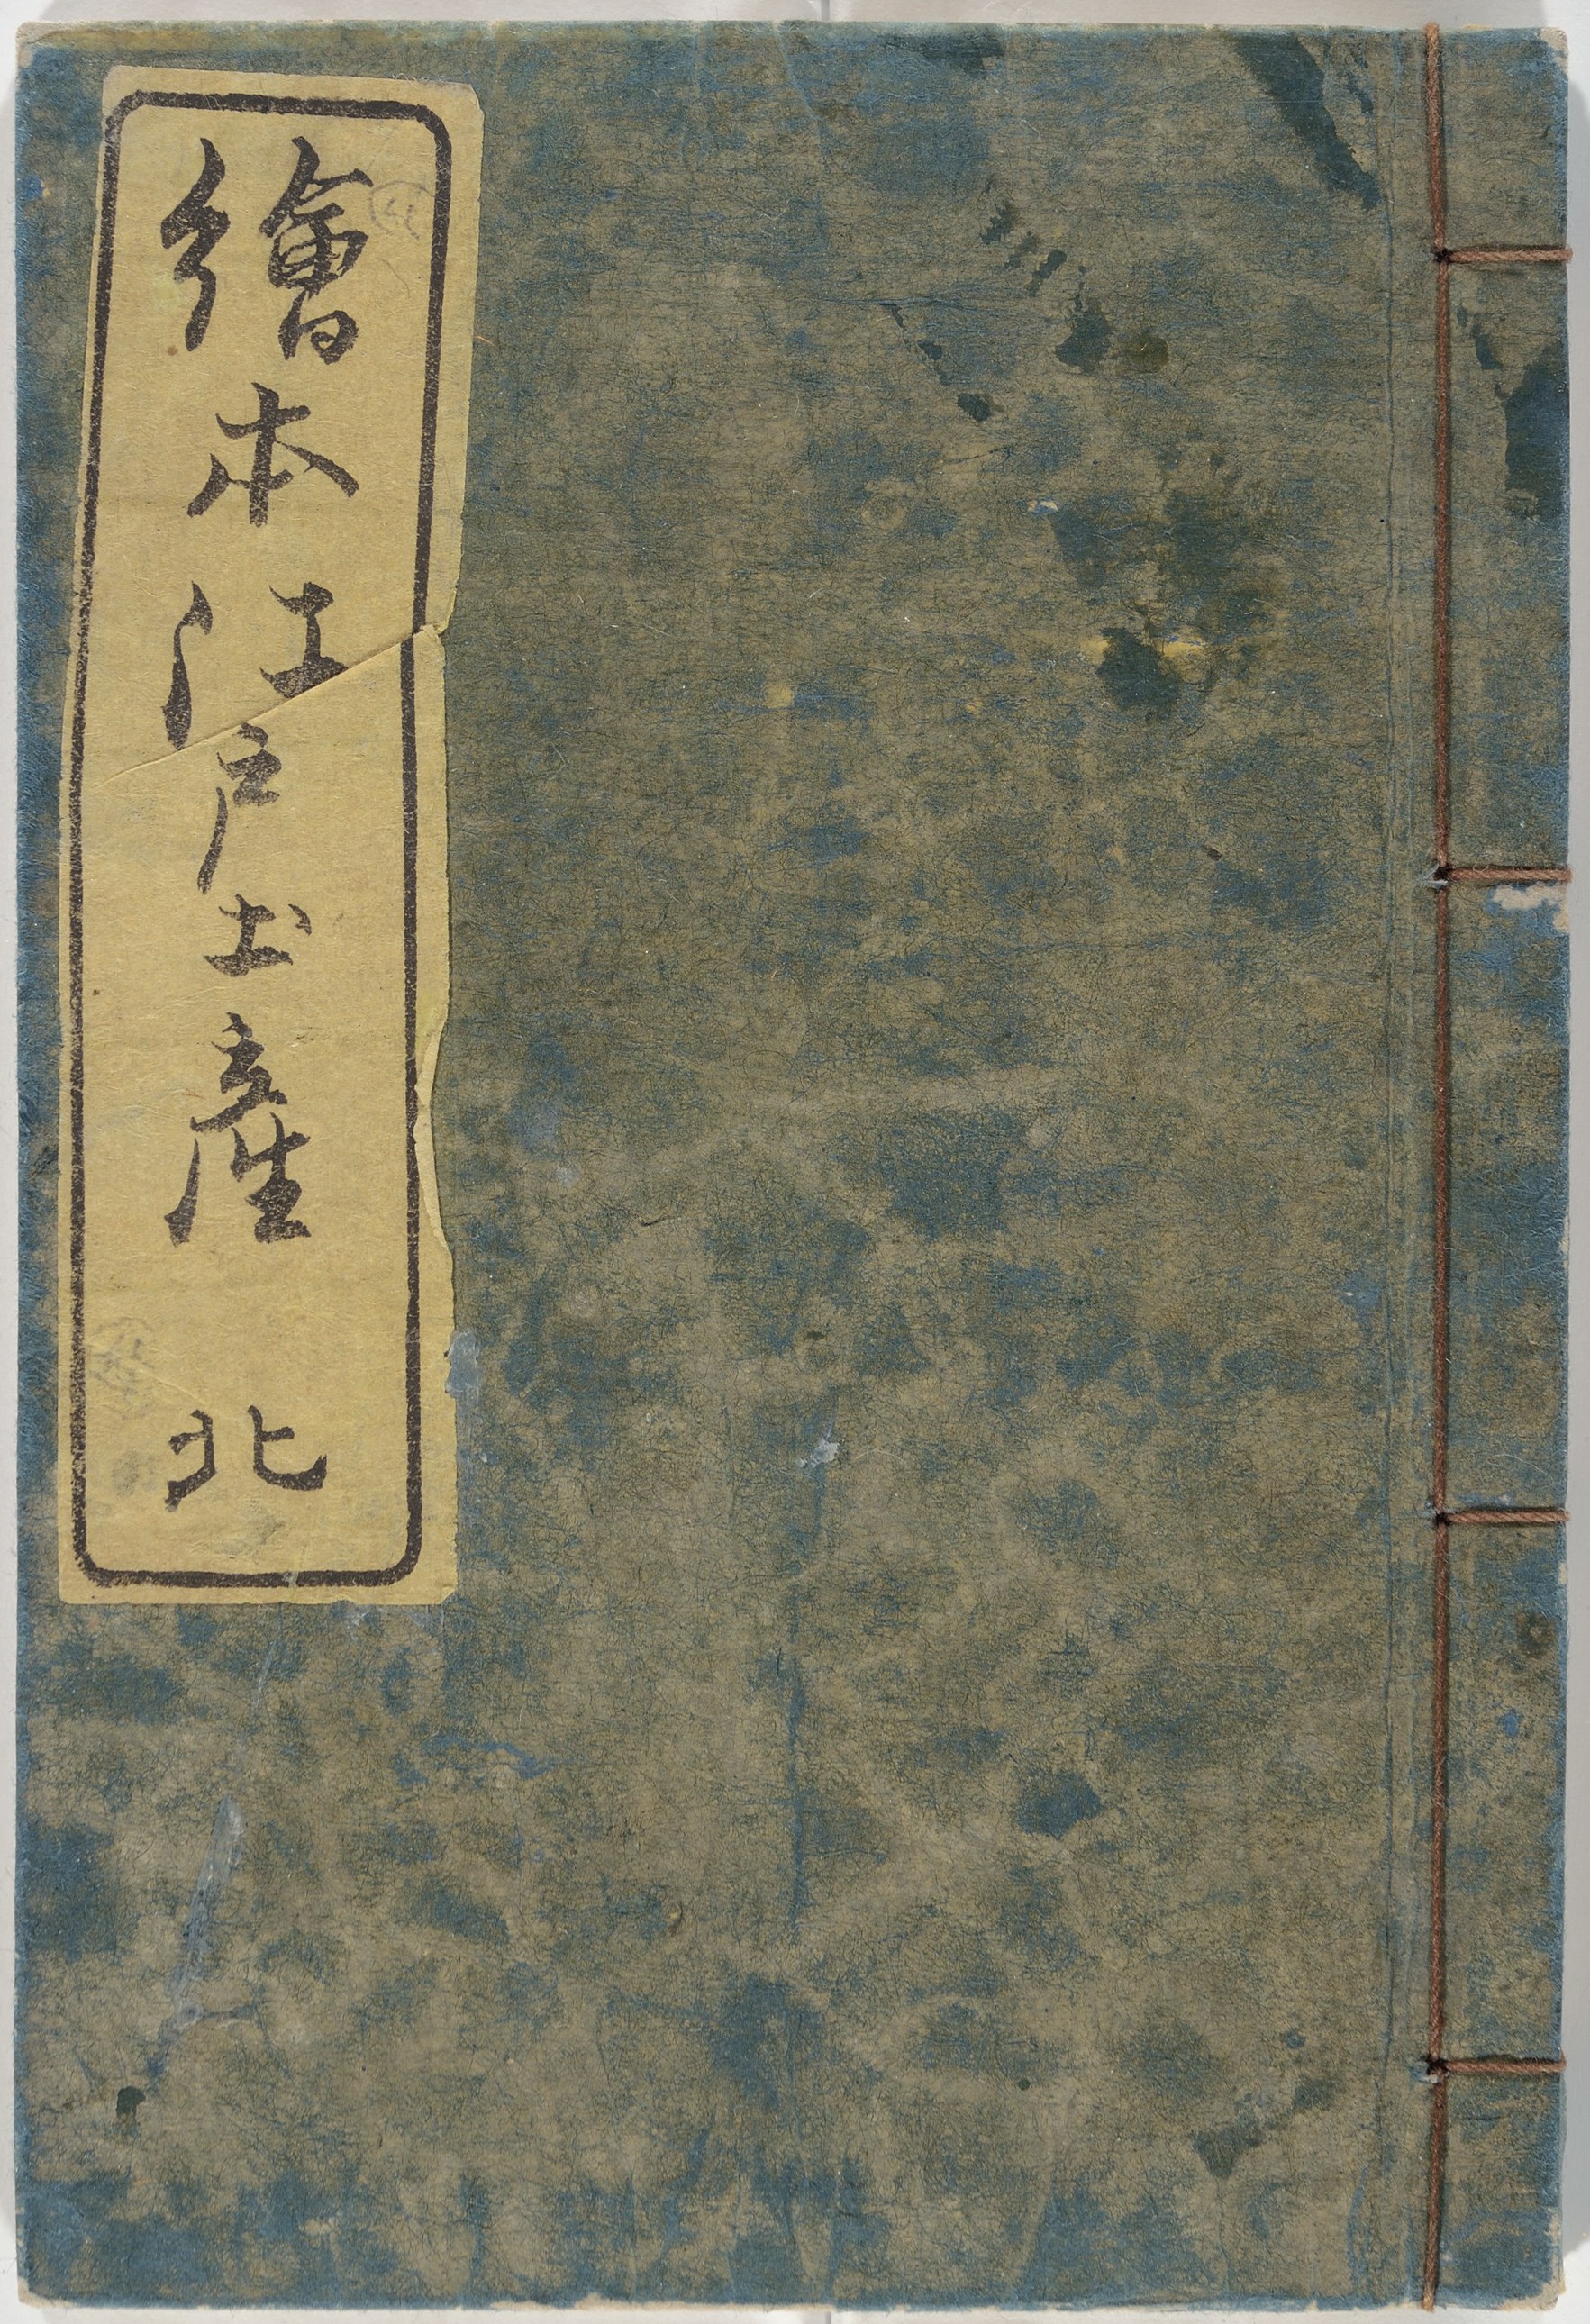 繪本江戸土産 北